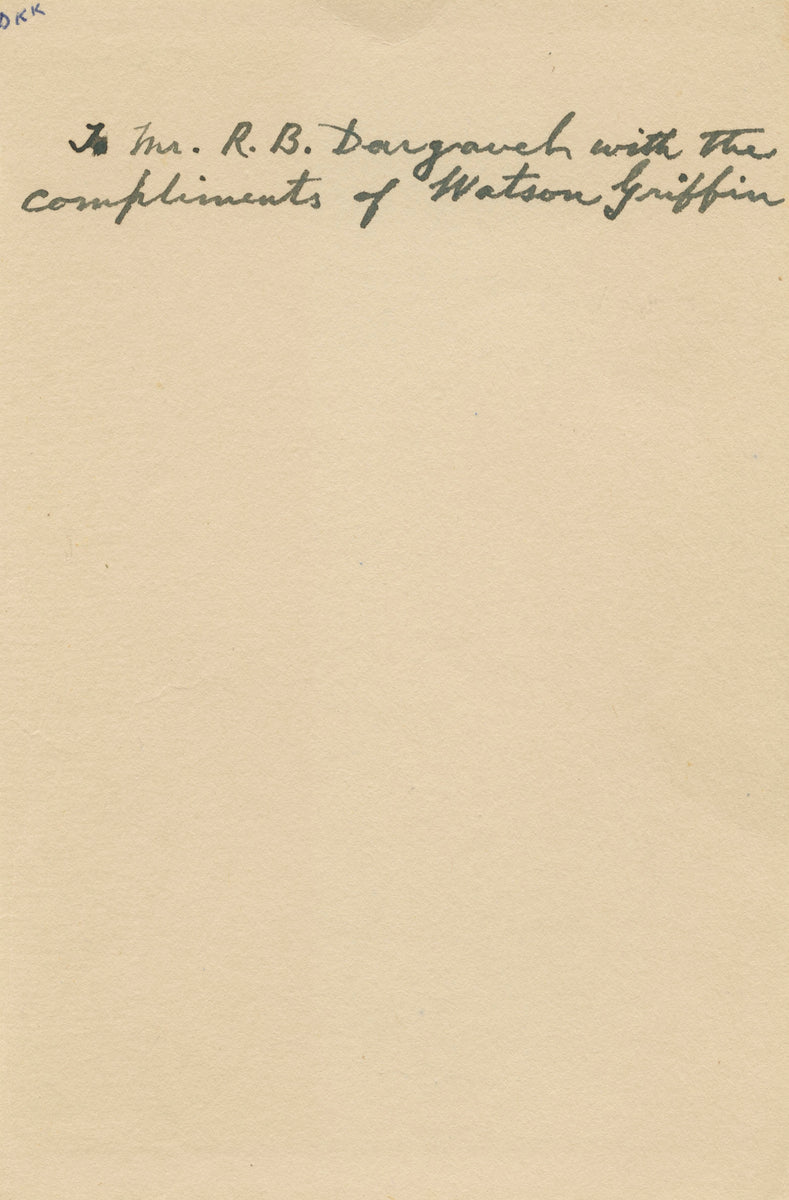 DKK
To Mr. R. B. Dargavel with the
compliments of Watson Griffin